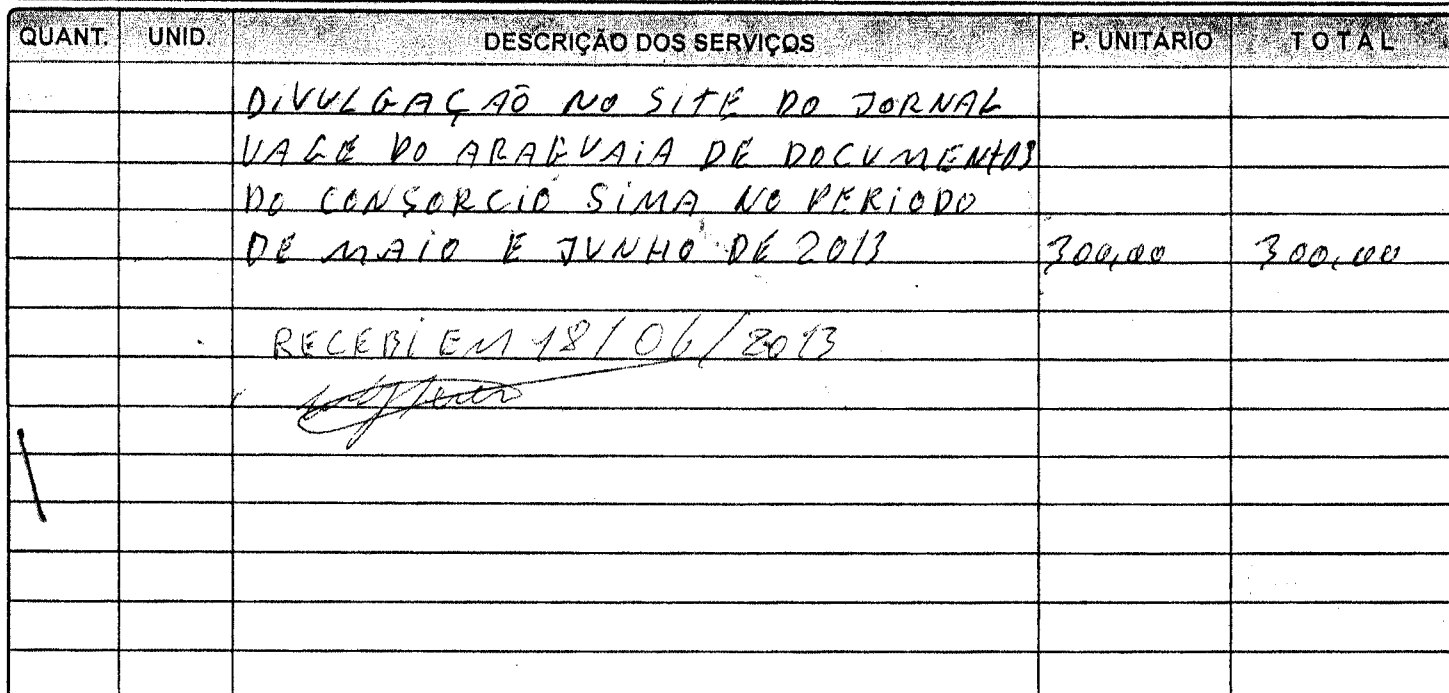 QUANT. UNID. DESCRIÇÃO DOS SERVIÇOS P. UNITÁRIO TOTAL
DIVULGAÇÃO NO SITE DO JORNAL
VALE DO ARAGUAIA DE DOCUMENTOS
DO CONSORCIO SIMA NO PERIODO
DE MAIO E JUNHO DE 2013 300,00 300,00
RECEBI EM 18/06/2013